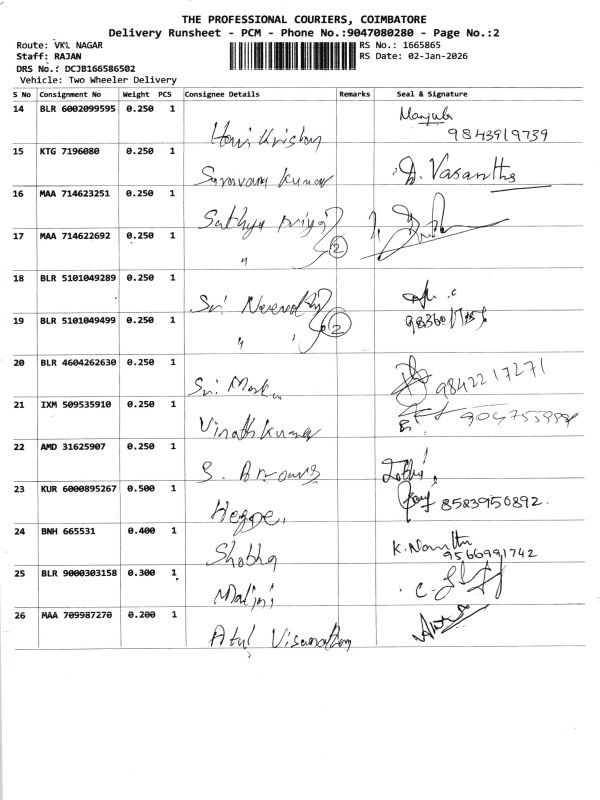 THE PROFESSIONAL COURIERS, COIMBATORE
Delivery Runsheet - PCM - Phone No.:9047080280 - Page No.:2
Route: VKL NAGAR
RS No.: 1665865
Staff: RAJAN
RS Date: 02-Jan-2026
DRS No.: DCJB166586502
Vehicle: Two Wheeler Delivery
S No Consignment No Weight PCS Consignee Details Remarks Seal & Signature
14 BLR 6002099595 0.250 1
Hari Krishnan Manjula
9843919739
15 KTG 7196080 0.250 1
Saravana Kumar D. Vasantha
16 MAA 714623251 0.250 1
Sathya Priya
17 MAA 714622692 0.250 1
" 2
18 BLR 5101049289 0.250 1
Sri
19 BLR 5101049499 0.250 1
" " 2
20 BLR 4604262630 0.250 1
Sri 9842217271
21 IXM 509535910 0.250 1
Vinoth Kumar
22 AMD 31625907 0.250 1
S.
23 KUR 6000895267 0.500 1
Hegge. 8583950892.
24 BNH 665531 0.400 1
Shobha K. Namitha
9566991742
25 BLR 9000303158 0.300 1
Malini
26 MAA 709987270 0.200 1
Atul Viswanathan